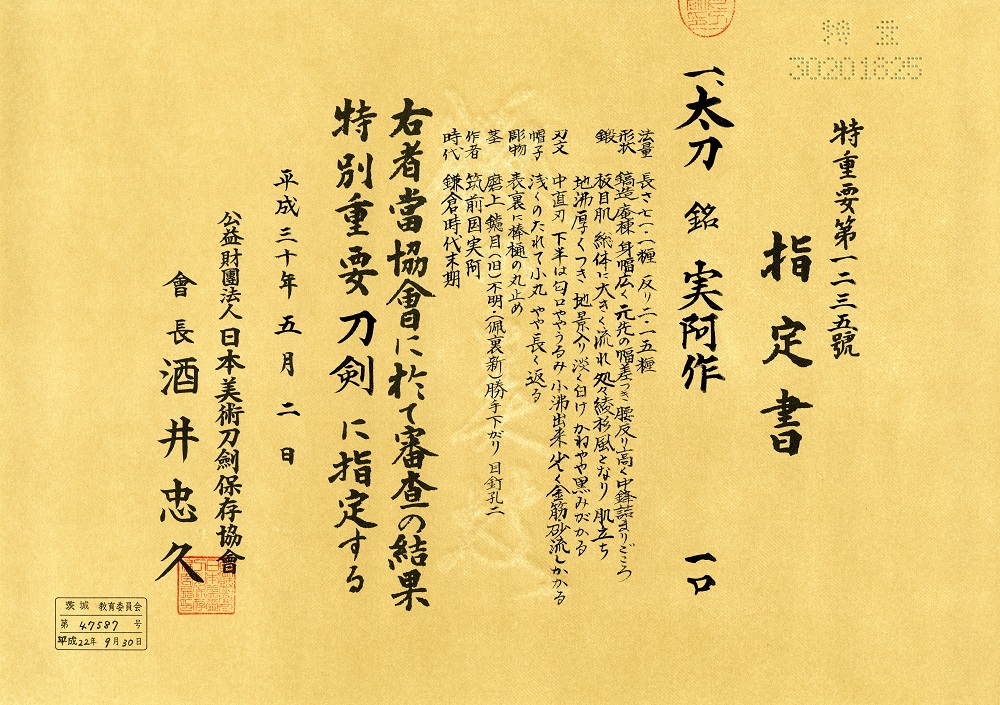 特重
30201825
特重要第一二三五號
指定書
一、太刀 銘 実阿作 一口
法量 長さ七一・一糎 反り二・一五糎
形状 鎬造 庵棟 身幅広く 元先の幅差つき 腰反り高く 中鋒詰まりごころ
鍛 板目肌、総体に大きく流れ 処々綾杉風となり 肌立ち
地沸厚くつき 地景入り 淡く白け かねやや黒みがかる
刃文 中直刃 下半は匂口ややうるみ 小沸出来 少しく金筋・砂流しかかる
帽子 浅くのたれて小丸 やや長く返る
彫物 表裏に棒樋の丸止め
茎 磨上 鑢目(旧)不明・(佩裏新)勝手下がり 目釘孔二
作者 筑前国実阿
時代 鎌倉時代末期
右者當協會に於て審査の結果
特別重要刀剣に指定する
平成三十年五月二日
公益財團法人日本美術刀劍保存協會
會長 酒井忠久
茨城 教育委員会
第 47587 号
平成22年9月30日